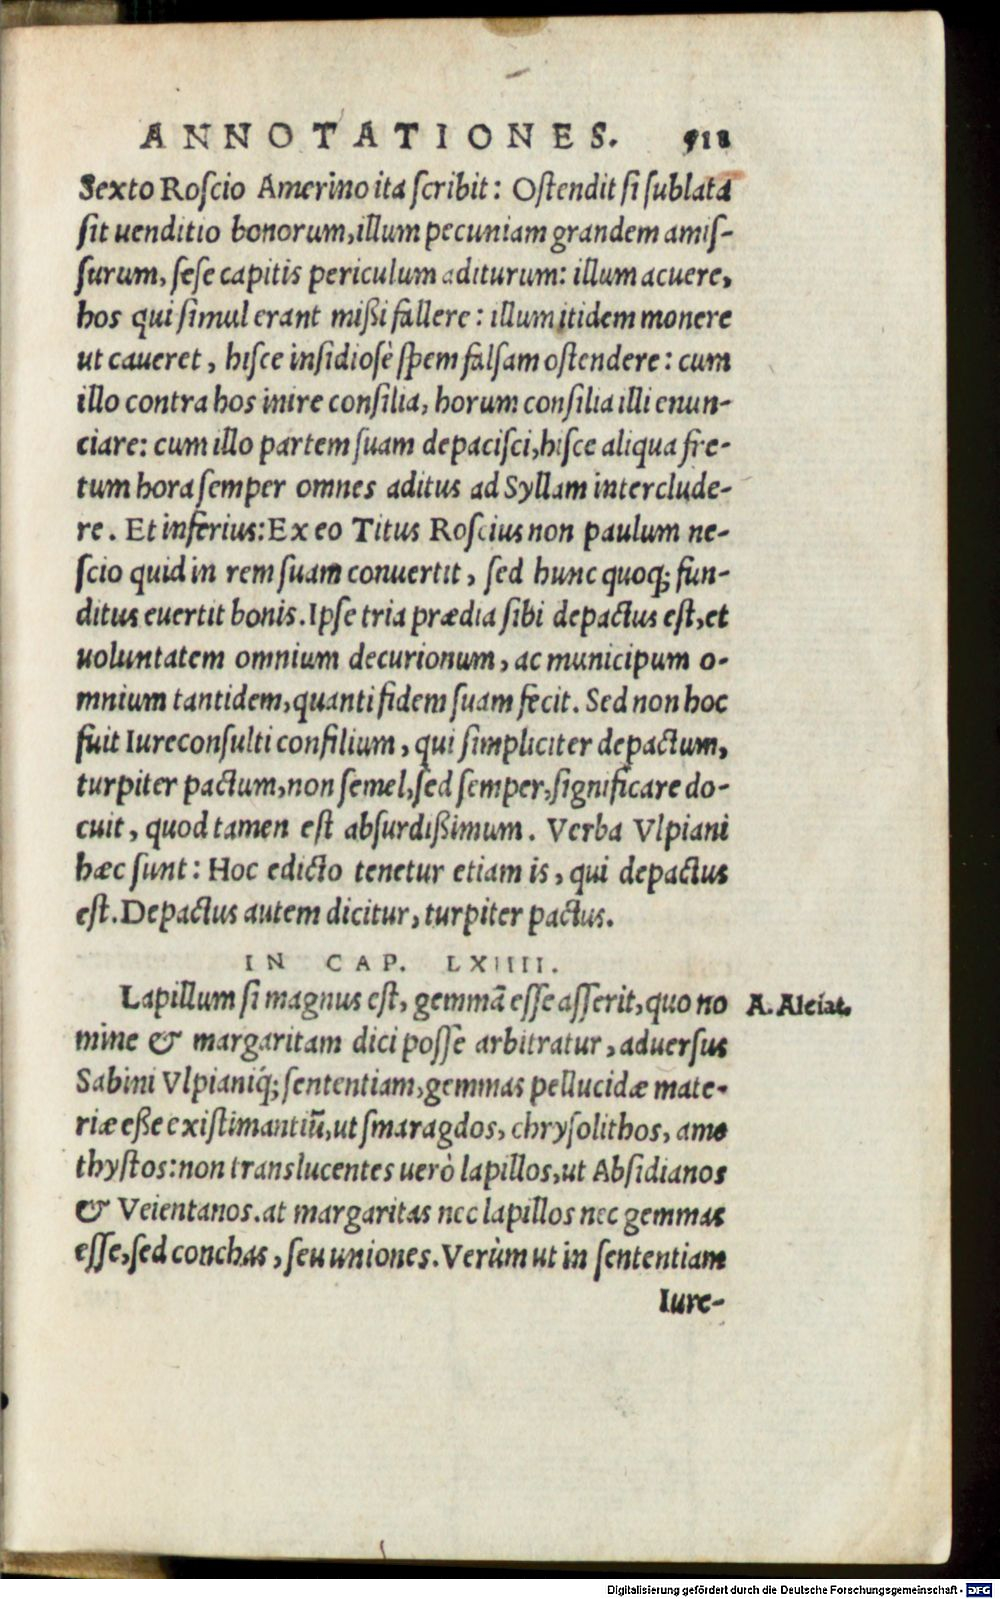 ANNOTATIONES. 518
Sexto Roſcio Amerino ita ſcribit: Oſtendit ſi ſublata
ſit uenditio bonorum, illum pecuniam grandem amiſ-
ſurum, ſeſe capitis periculum aditurum: illum acuere,
hos qui ſimul erant mißi fallere: illum itidem monere
ut caueret, hiſce inſidioſè ſpem falſam oſtendere: cum
illo contra hos inire conſilia, horum conſilia illi enun-
ciare: cum illo partem ſuam depaciſci, hiſce aliqua fre-
tum hora ſemper omnes aditus ad Syllam interclude-
re. Et inferius: Ex eo Titus Roſcius non paulum ne-
ſcio quid in rem ſuam conuertit, ſed hunc quoq; fun-
ditus euertit bonis. Ipſe tria prædia ſibi depactus eſt, et
uoluntatem omnium decurionum, ac municipum o-
mnium tantidem, quanti fidem ſuam fecit. Sed non hoc
fuit Iureconſulti conſilium, qui ſimpliciter depactum,
turpiter pactum, non ſemel, ſed ſemper, ſignificare do-
cuit, quod tamen eſt abſurdißimum. Verba Vlpiani
hæc ſunt: Hoc edicto tenetur etiam is, qui depactus
eſt. Depactus autem dicitur, turpiter pactus.
IN CAP. LXIIII.
Lapillum ſi magnus eſt, gemmā eſſe aſſerit, quo no A. Alciat.
mine & margaritam dici poſſe arbitratur, aduerſus
Sabini Vlpianiq́; ſententiam, gemmas pellucidæ mate-
riæ eße exiſtimantiū, ut ſmaragdos, chryſolithos, ame
thyſtos: non translucentes uerò lapillos, ut Abſidianos
& Veientanos. at margaritas nec lapillos nec gemmas
eſſe, ſed conchas, ſeu uniones. Verùm ut in ſententiam
Iure-
Digitalisierung gefördert durch die Deutsche Forschungsgemeinschaft - DFG